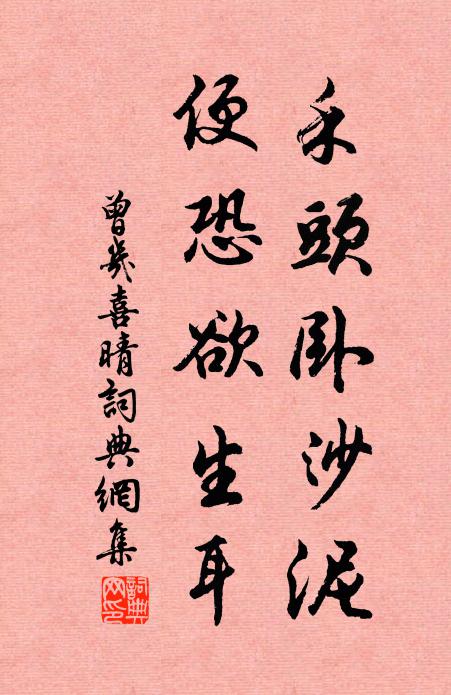 禾頭卧沙泥
便恐欲生耳
曾幾喜晴詞典網集
詞典網印